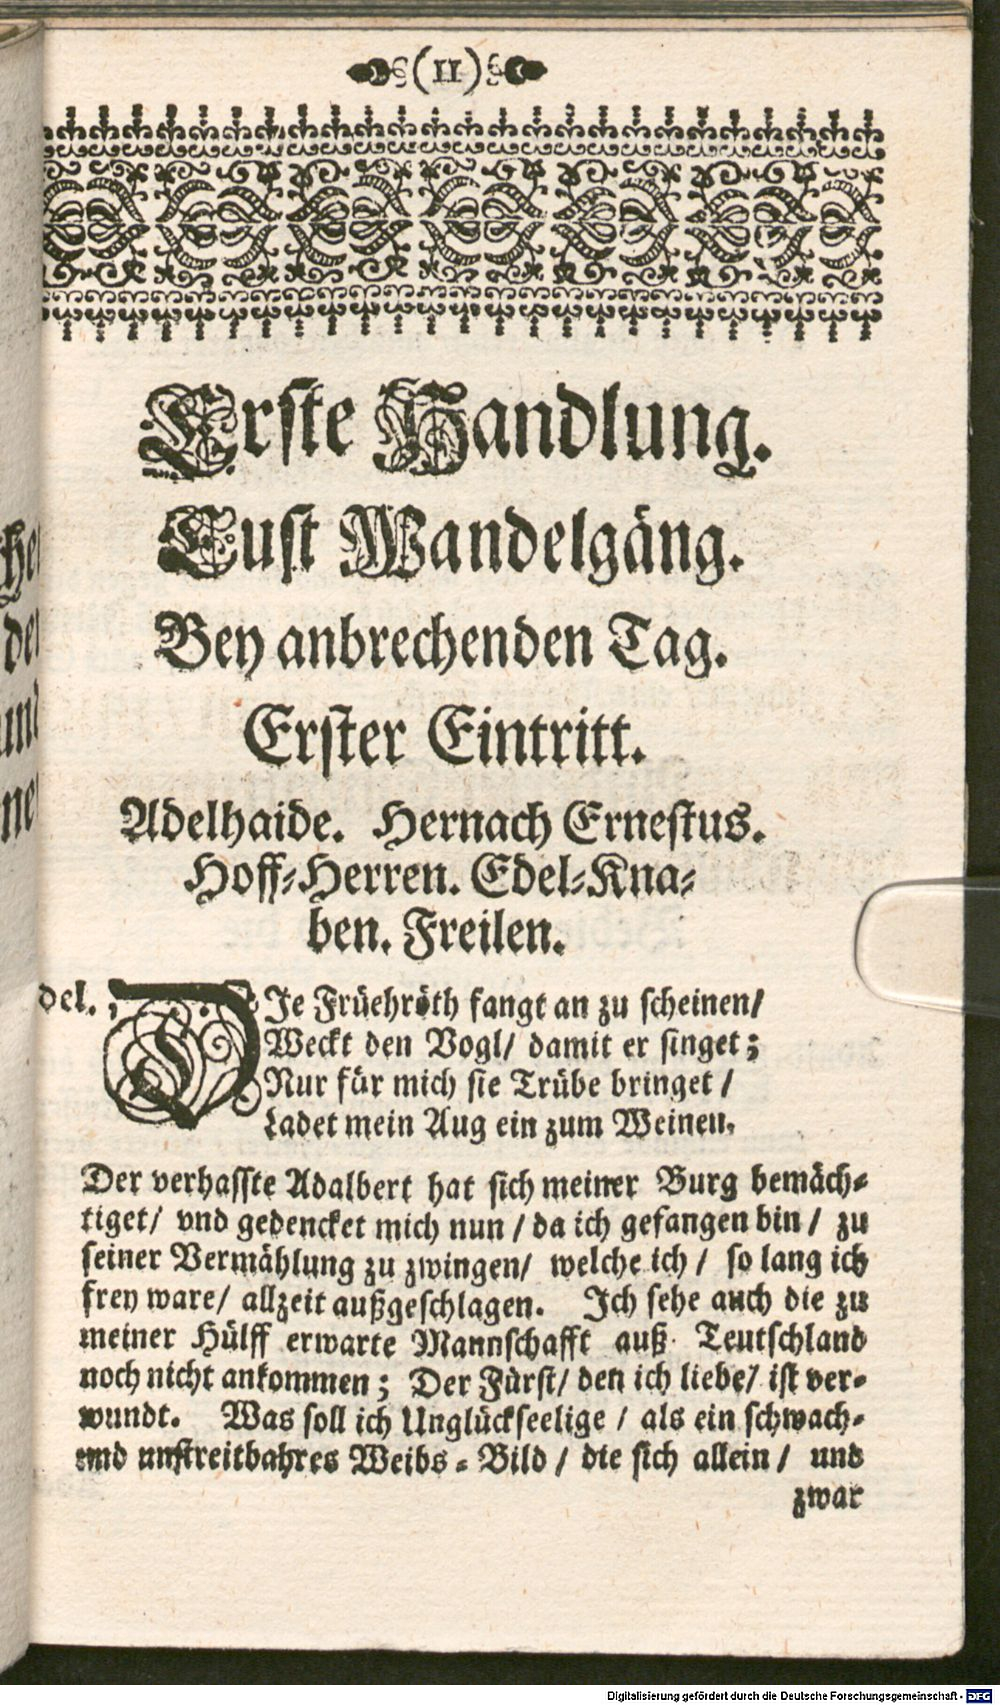 (11)
Erste Handlung.
Lust Wandelgäng.
Bey anbrechenden Tag.
Erster Eintritt.
Adelhaide. Hernach Ernestus.
Hoff-Herren. Edel-Kna-
ben. Freilen.
del. DIe Früehröth fangt an zu scheinen/
Weckt den Vogl/ damit er singet;
Nur für mich sie Trübe bringet /
Ladet mein Aug ein zum Weinen.
Der verhasste Adalbert hat sich meiner Burg bemäch-
tiget/ vnd gedencket mich nun / da ich gefangen bin / zu
seiner Vermählung zu zwingen/ welche ich / so lang ich
frey ware/ allzeit außgeschlagen. Ich sehe auch die zu
meiner Hülff erwarte Mannschafft auß Teutschland
noch nicht ankommen; Der Fürst/ den ich liebe/ ist ver-
wundt. Was soll ich Unglückseelige / als ein schwach-
und unstreitbahres Weibs-Bild / die sich allein / und
zwar
Digitalisierung gefördert durch die Deutsche Forschungsgemeinschaft - DFG